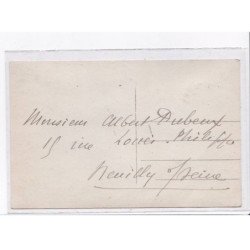 Monsieur Albert Dubeux
15 rue Louis Philippe
Neuilly s/Seine